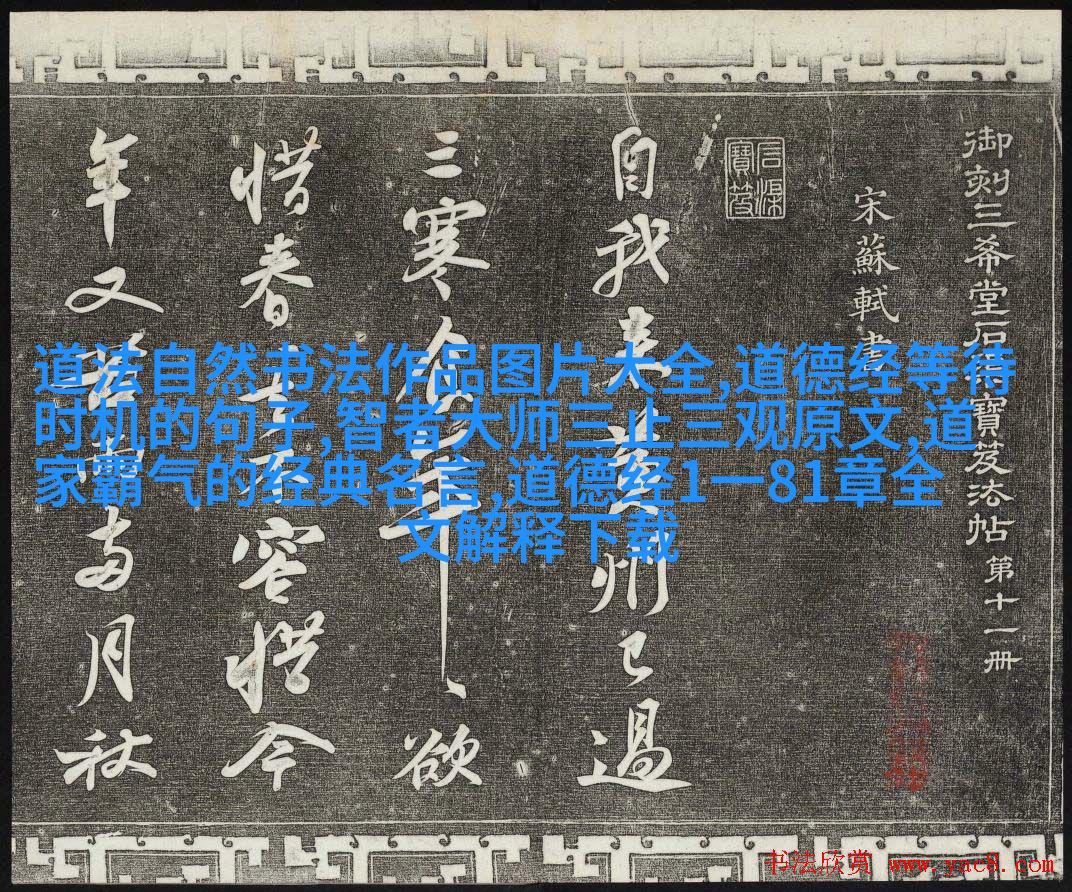 御刻三希堂石渠寶笈法帖 第十一册
宋蘇軾書
石渠寶笈
自我来黃州已過
三寒食年々欲
惜春々去不容惜今
年又苦雨兩月秋
道法自然书法作品图片大全,道德经等待
时机的句子,智者大师三止三观原文,道
家霸气的经典名言,道德经1一81章全
文解释下载
书法欣赏 www.yac8.com